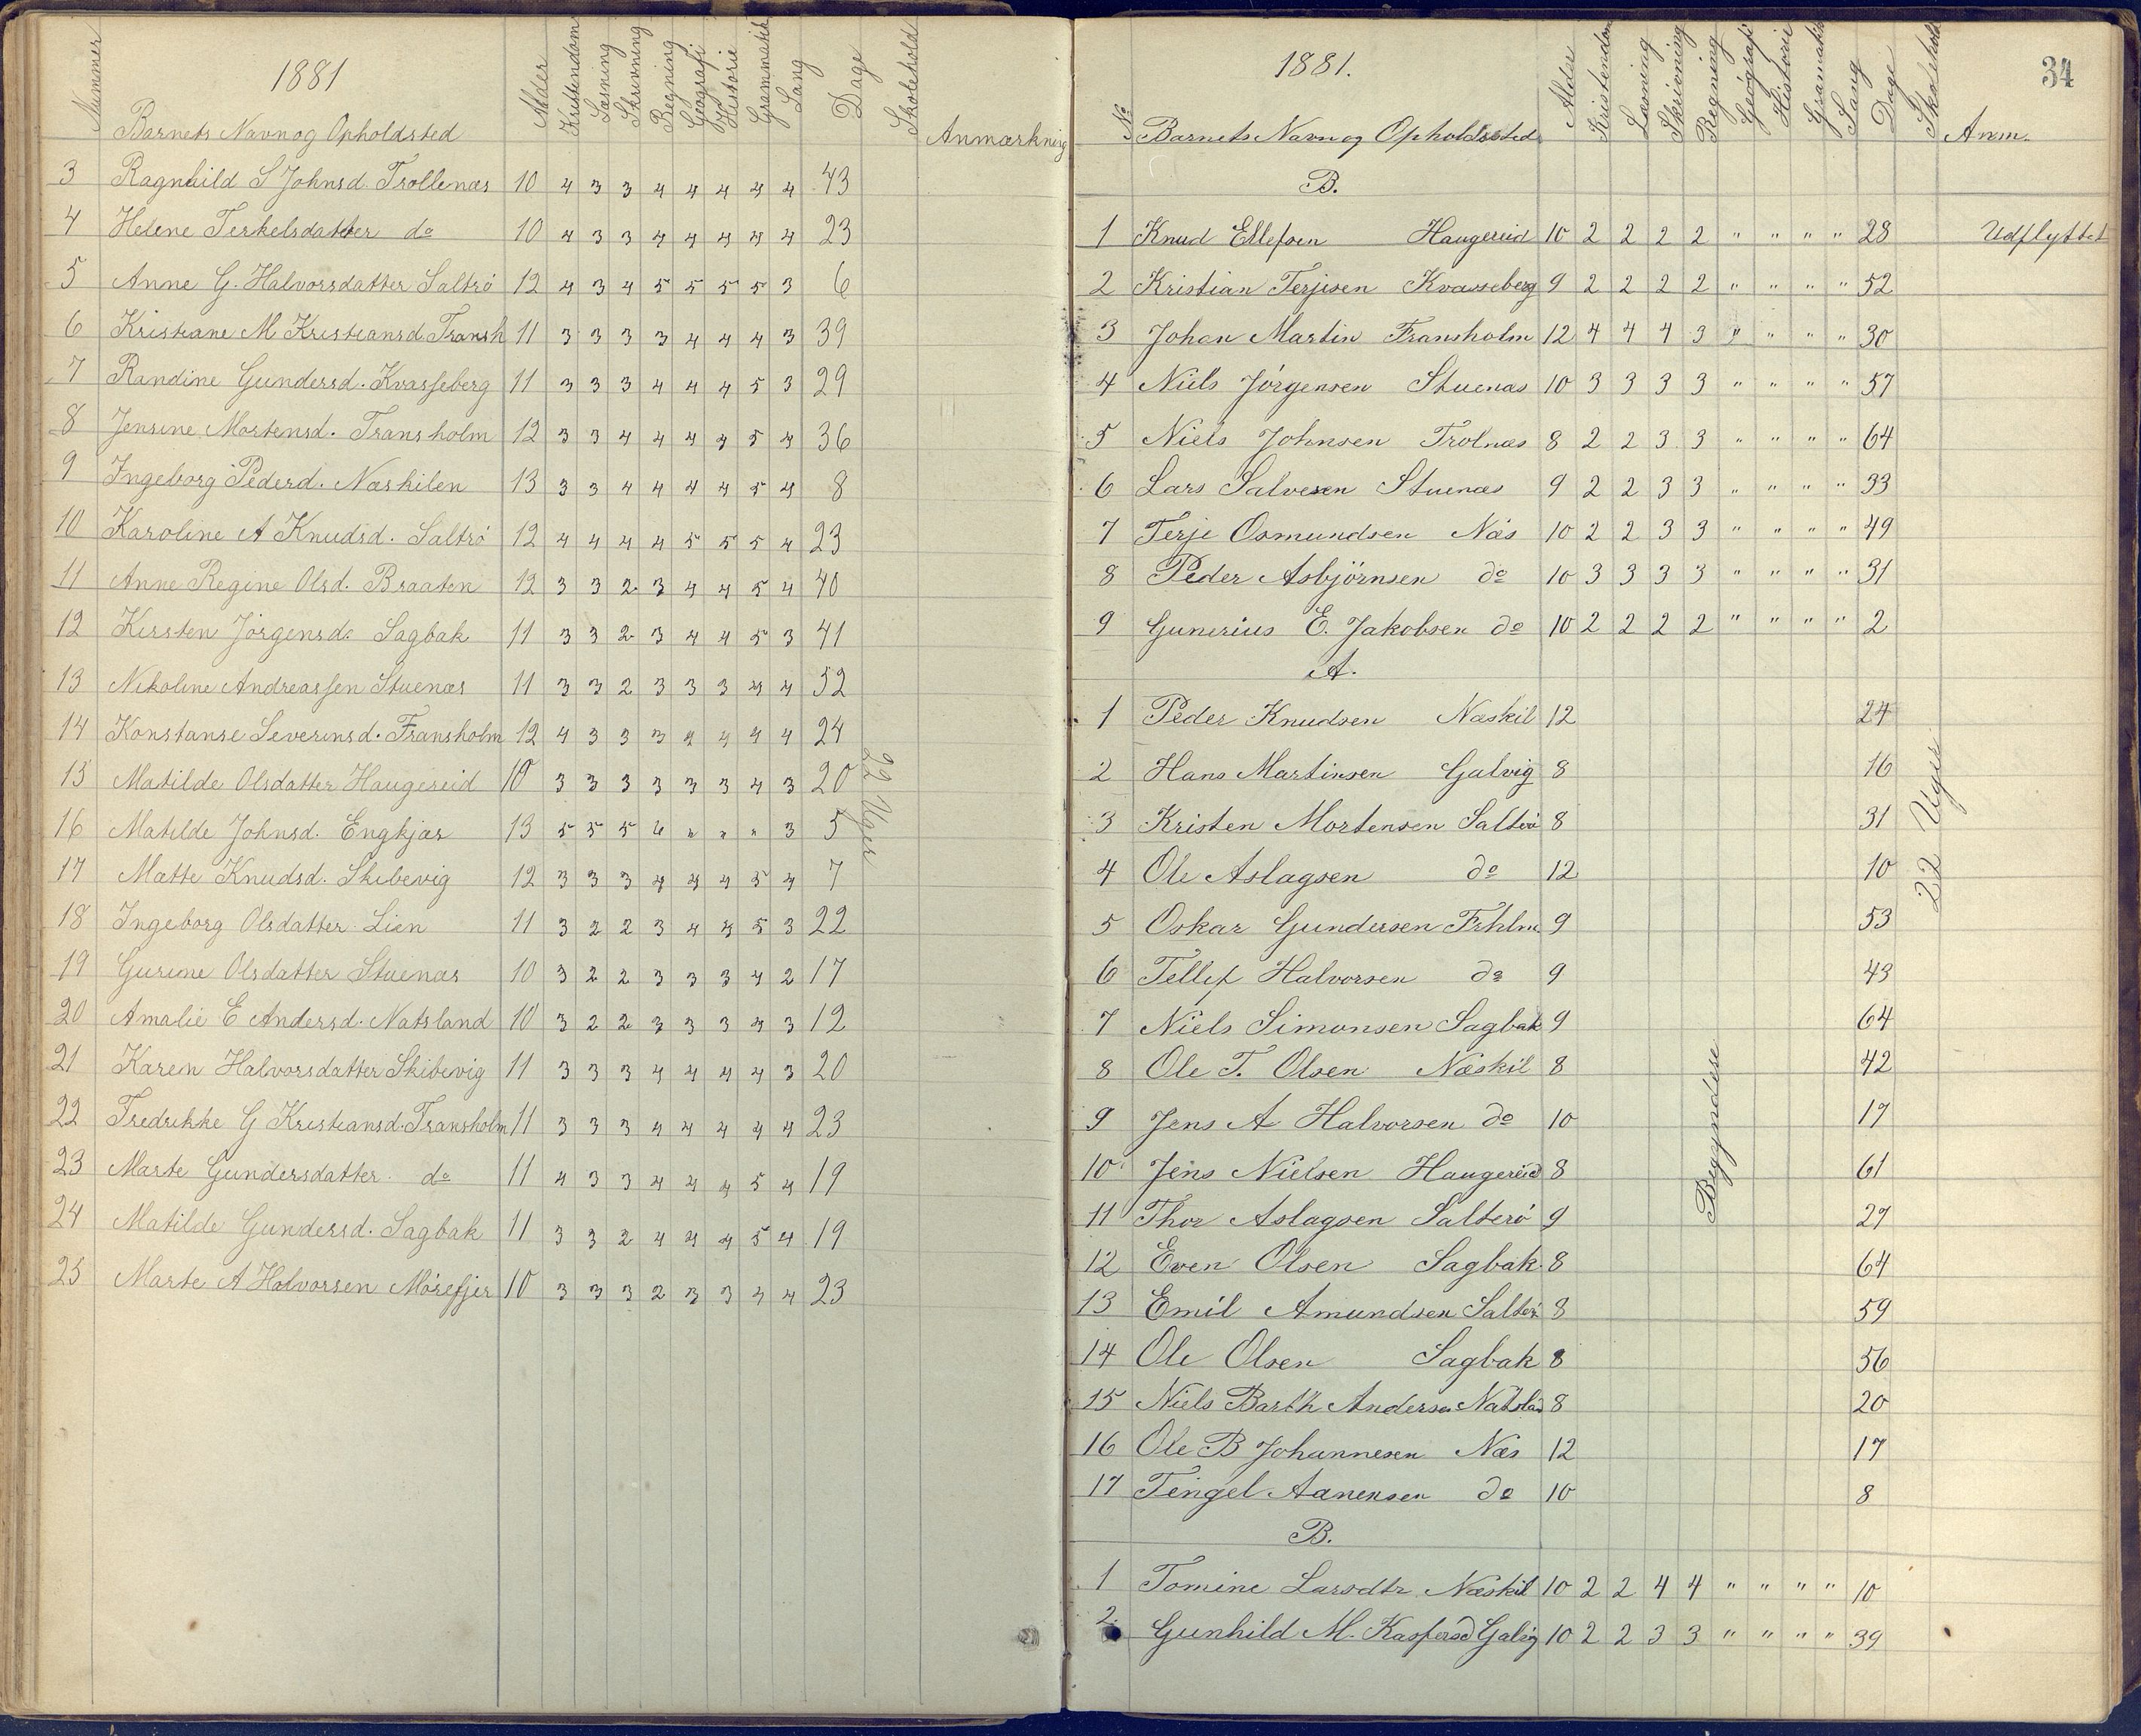 Nummer 1881 Alder Kristendom Læsning Skrivning Regning Geografi Historie Grammatik Sang Dage Skolehold
Barnets Navn og Opholdsted Anmærkning
3 Ragnhild S Johnsd. Trollenæs 10 4 3 3 4 4 4 4 4 43
4 Helene Terkelsdatter do 10 4 3 3 4 4 4 4 4 23
5 Anne G. Halvorsdatter Saltrö 12 4 3 4 5 5 5 5 3 6
6 Kristiane M Kristiansd. Fransh 11 3 3 3 3 4 4 4 3 39
7 Randine Gundersd. Kvasseberg 11 3 3 3 4 4 4 5 3 29
8 Jensine Mortensd. Fransholm 12 3 3 4 4 4 4 5 4 36
9 Ingeborg Pederd. Næskilen 13 3 3 4 4 4 4 5 4 8
10 Karoline A Knudsd. Saltrö 12 4 4 4 4 5 5 5 4 23
11 Anne Regine Olsd. Braaten 12 3 3 2 3 4 4 5 4 40
12 Kirsten Jörgensd. Sagbak 11 3 3 2 3 4 4 5 3 41
13 Nikoline Andreassen Stuenæs 11 3 3 2 3 3 3 4 4 52
14 Konstanse Severinsd. Fransholm 12 4 3 3 3 4 4 4 4 24
15 Matilde Olsdatter Haugereid 10 3 3 3 3 3 3 4 3 20
16 Matilde Johnsd. Engkjær 13 5 5 5 6 " " " 3 5
17 Matte Knudsd. Skibevig 12 3 3 3 4 4 4 5 4 7
18 Ingeborg Olsdatter Lien 11 3 2 2 3 4 4 5 3 22
19 Gurine Olsdatter Stuenæs 10 3 2 2 3 3 3 4 2 17
20 Amalie E Andersd. Natsland 10 3 2 2 3 3 3 4 3 12
21 Karen Halvorsdatter Skibevig 11 3 3 3 4 4 4 4 3 20
22 Fredrikke G Kristiansd. Fransholm 11 3 3 3 4 4 4 4 4 23
23 Marte Gundersdatter do 11 4 3 3 4 4 4 5 4 19
24 Matilde Gundersd. Sagbak 11 3 3 2 4 4 4 5 4 19
25 Marte A Halvorsen Mörefjer 10 3 3 3 2 3 3 4 4 23
22 Uger
34
1881. Alder Kristendom Læsning Skrivning Regning Geografi Historie Gramatik Sang Dage Skolehold
No Barnets Navn og Opholdssted Anm.
B.
1 Knud Ellefsen Haugereid 10 2 2 2 2 " " " " 28 Udflyttet
2 Kristian Terjisen Kvasseberg 9 2 2 2 2 " " " " 52
3 Johan Martin Fransholm 12 4 4 4 3 " " " " 30
4 Niels Jörgensen Stuenæs 10 3 3 3 3 " " " " 57
5 Niels Johnsen Trolnæs 8 2 2 3 3 " " " " 64
6 Lars Salvesen Stuenæs 9 2 2 3 3 " " " " 33
7 Terje Osmundsen Næs 10 2 2 3 3 " " " " 49
8 Peder Asbjörnsen do 10 3 3 3 3 " " " " 31
9 Gunerius E. Jakobsen do 10 2 2 2 2 " " " " 2
A.
1 Peder Knudsen Næskil 12 24
2 Hans Martinsen Galvig 8 16
3 Kristen Mortensen Salterö 8 31
4 Ole Aslagsen do 12 10
5 Oskar Gundersen Frhlm 9 53
6 Tellef Halvorsen do 9 43
7 Niels Simonsen Sagbak 9 64
8 Ole T. Olsen Næskil 8 42
9 Jens A Halvorsen do 10 17
10 Jens Nielsen Haugereid 8 61
11 Thor Aslagsen Salterö 9 27
12 Even Olsen Sagbak 8 64
13 Emil Amundsen Salterö 8 59
14 Ole Olsen Sagbak 8 56
15 Niels Barth Andersen Natsland 8 20
16 Ole B Johannesen Næs 12 17
17 Tengel Aanensen do 10 8
Begyndere
22 Uger
B.
1 Tomine Larsdtr Næskil 10 2 2 4 4 " " " " 10
2. Gunhild M. Kaspersd Galvig 10 2 2 3 3 " " " " 39